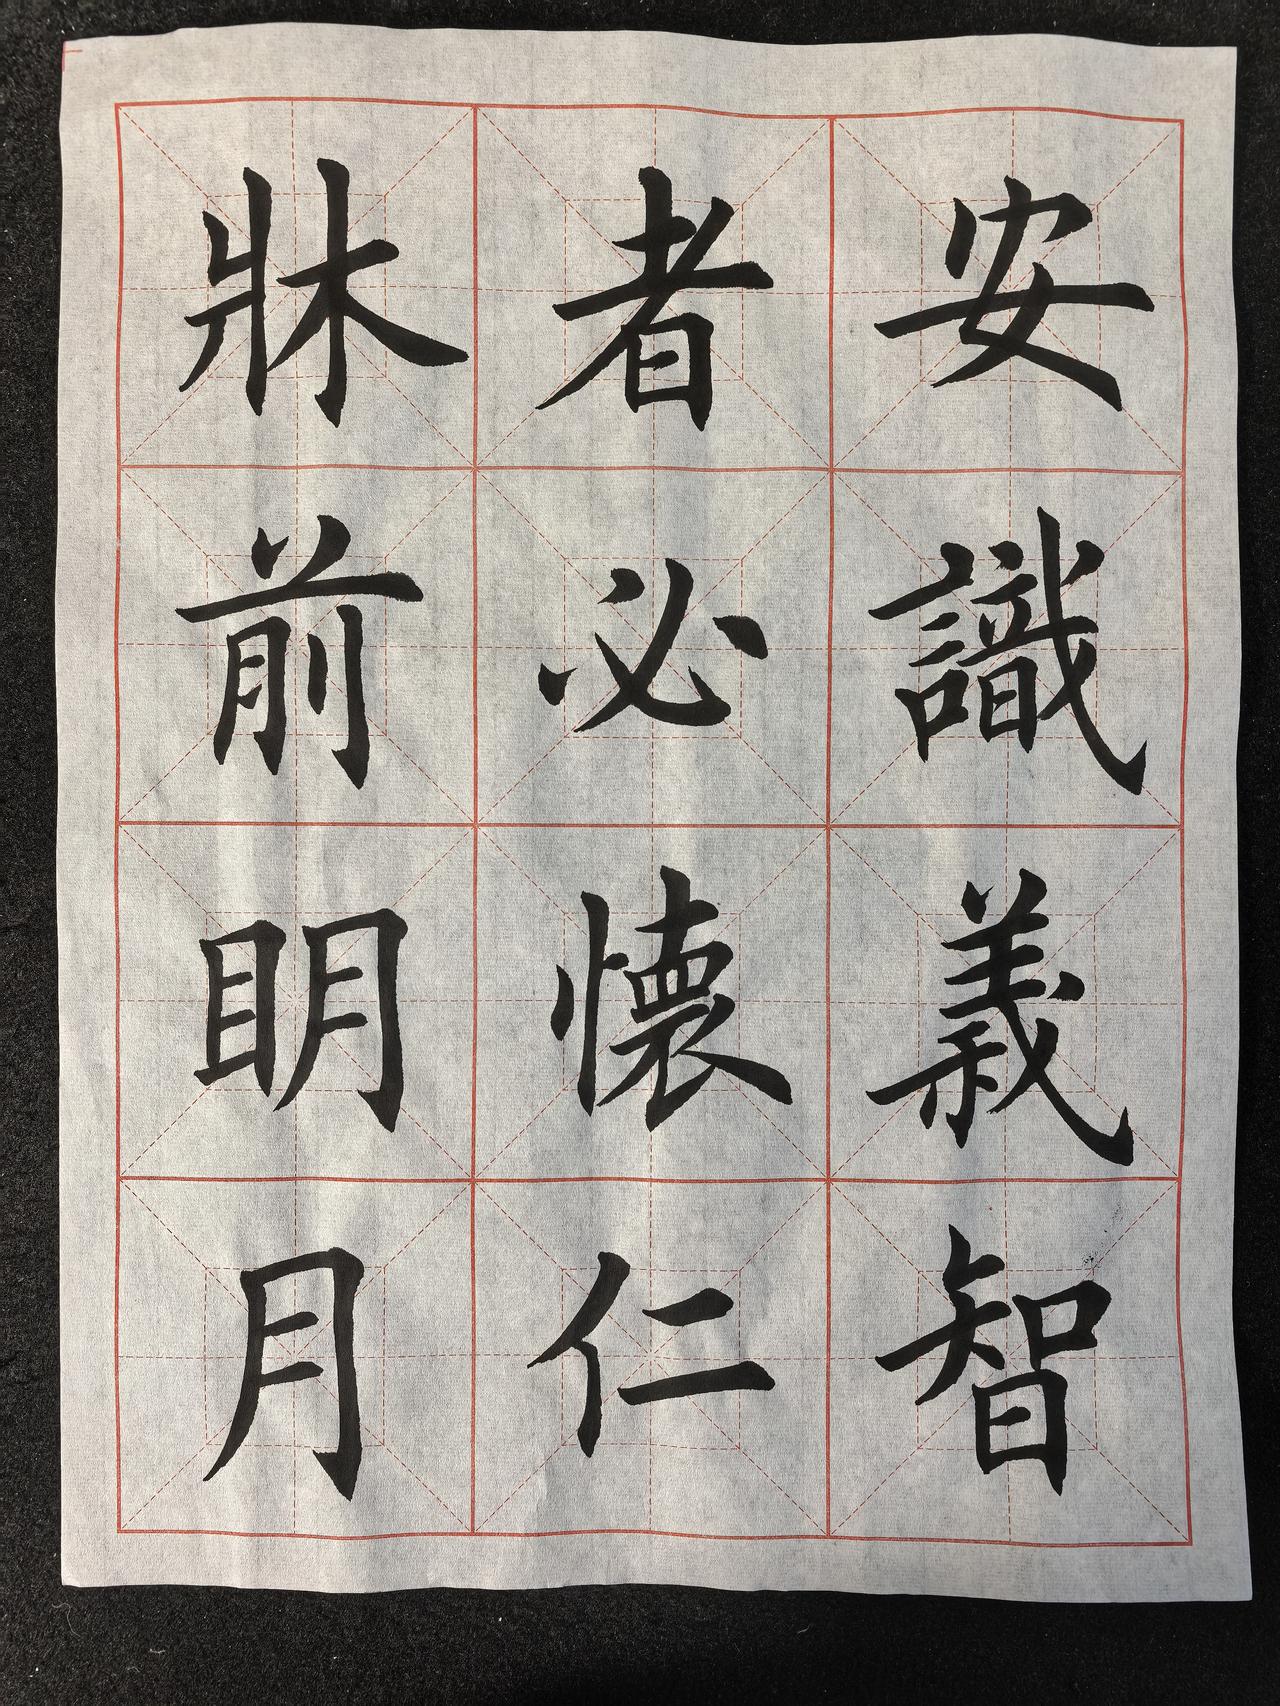 安識義智
者必懐仁
牀前眀月